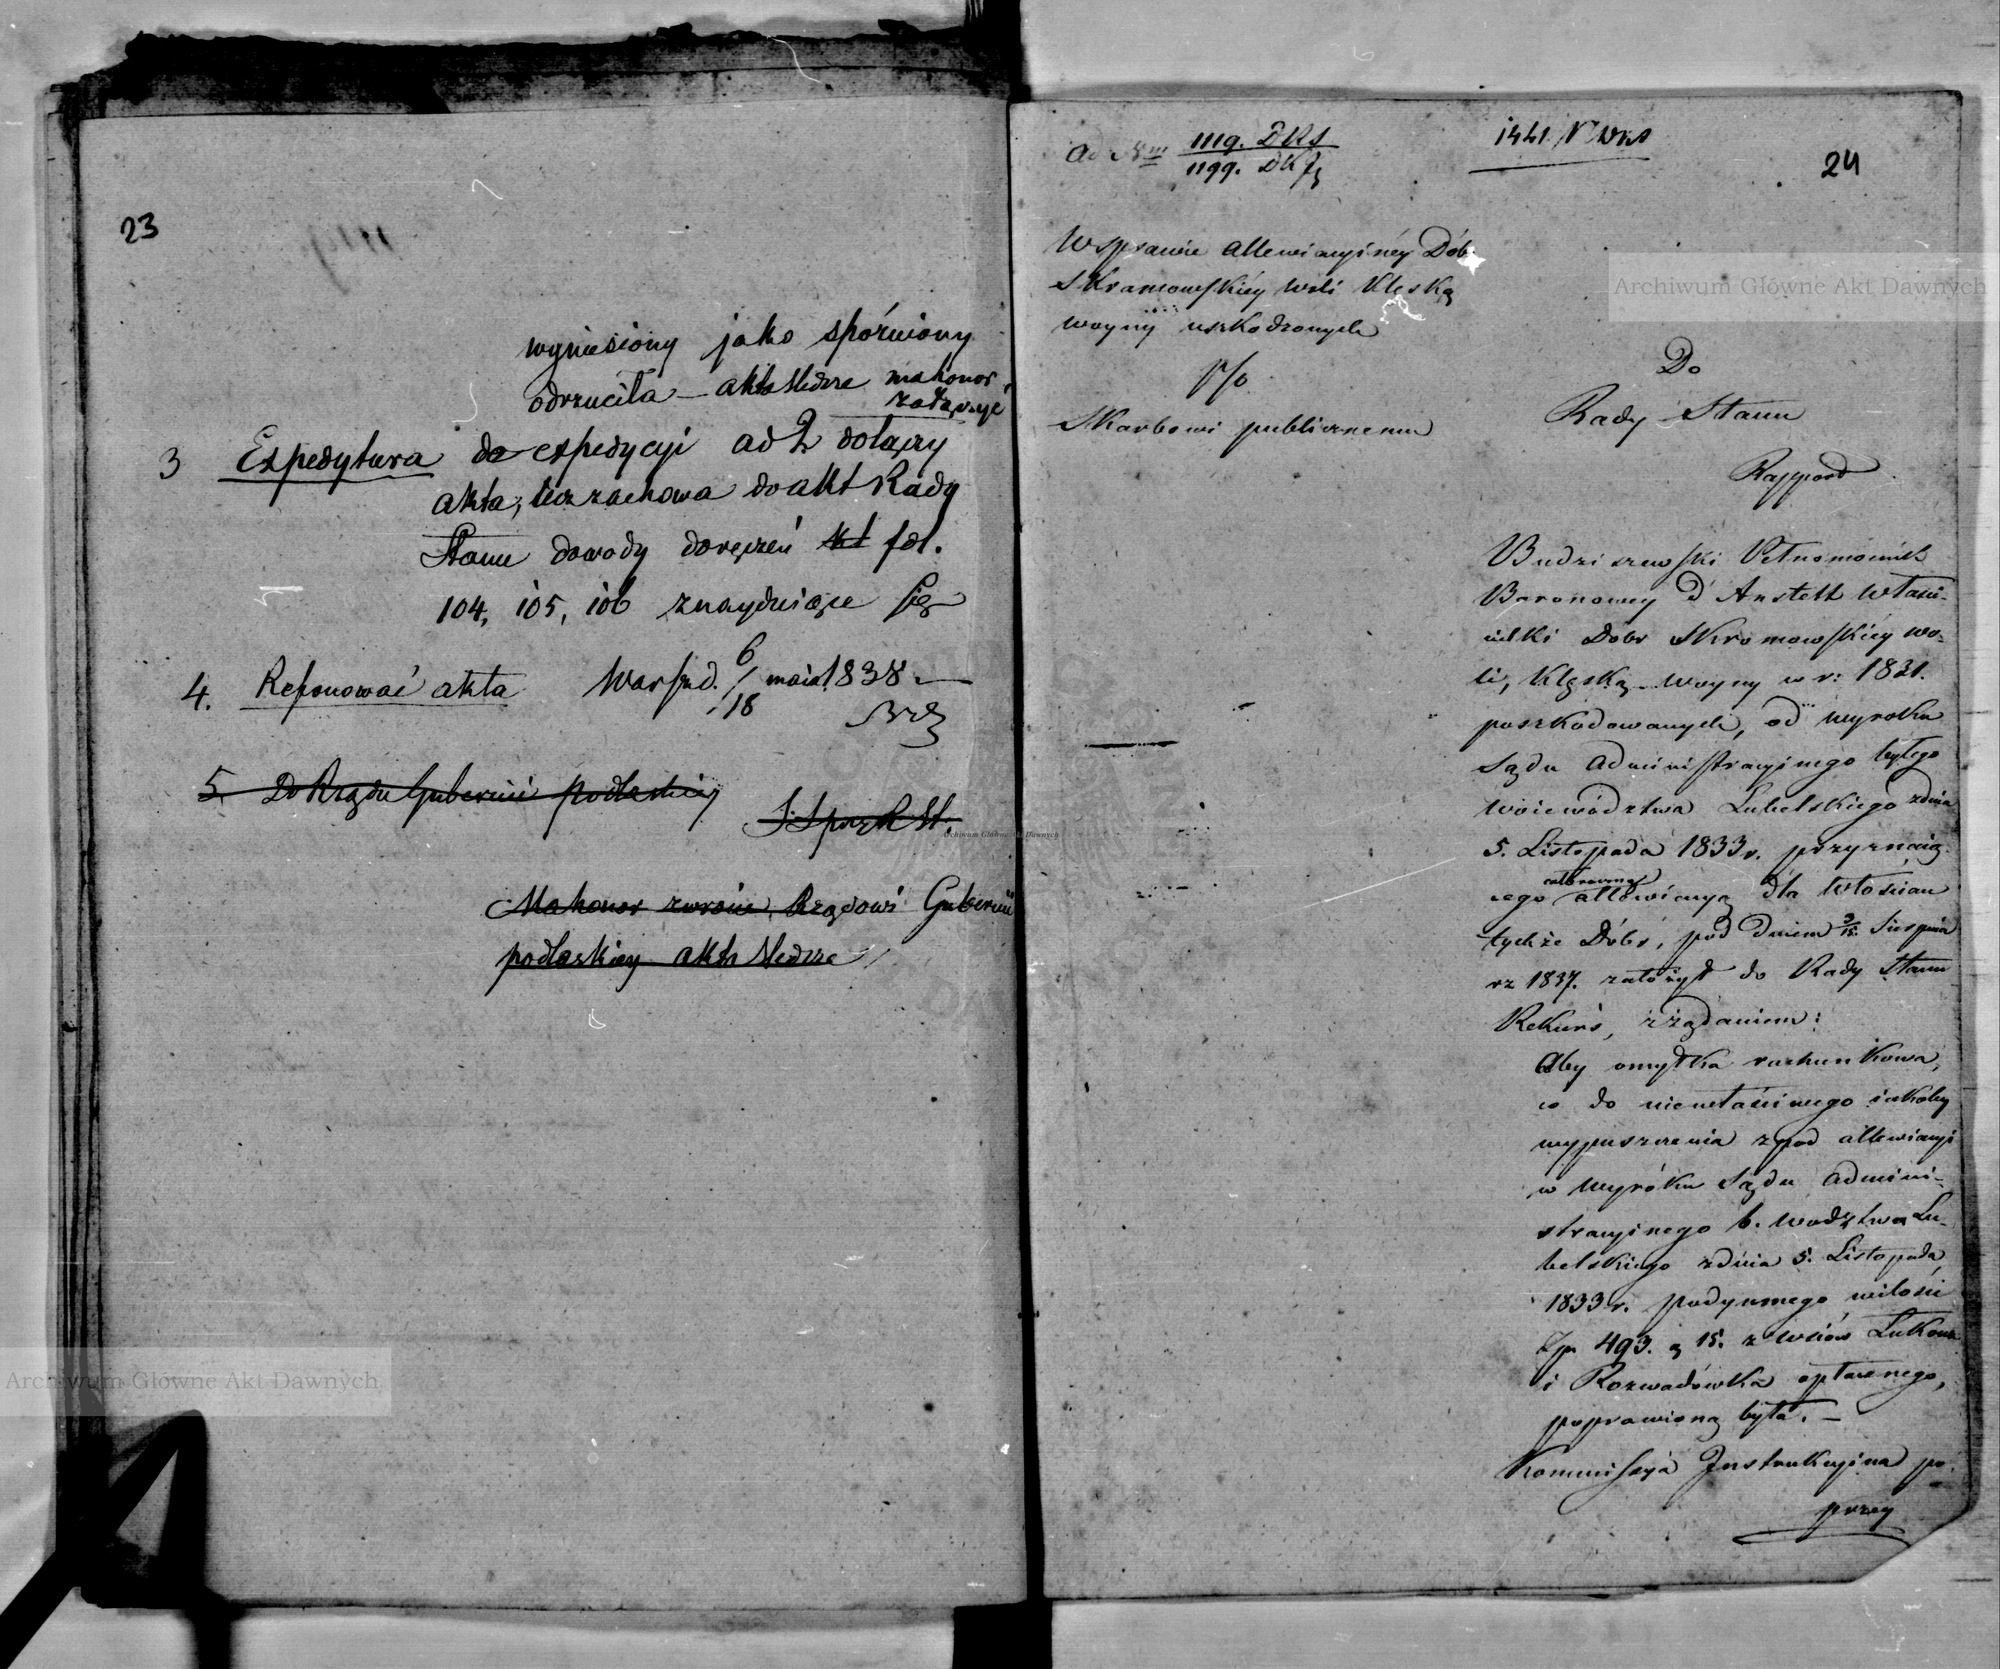 23
wyniesiony jako spóźniony
odrzuciła – akta śledcze ma honor
załączyć
3 Expedytura do expedycyi ad 2 dołączy
akta, lecz zachowa do akt Rady
Stanu dowody doręczeń fol.
104, 105, 106 znayduiące się
4. Reponować akta Warsz. d. 6/18 maia 1838
5. Do Rządu Gubernii podlaskiey
Ma honor zwrócić Rządowi Gubernii
podlaskiey akta śledcze
Ad Nm 1119. DRS
1199. DK
1441
24
W sprawie allewiacyinéy Dóbr
Skromowskiéy Woli klęską
woyny uszkodzonych
p/o
Skarbowi publicznemu
Do
Rady Stanu
Rapport
Budziszewski Pełnomocnik
Baronowey d'Anstett właści-
cielki Dóbr Skromowskiéy wo-
li, klęską woyny w r: 1831.
poszkodowanych, od wyroku
Sądu Administracyinego byłego
Woiewództwa Lubelskiego z dnia
5. Listopada 1833 r. przyznaią-
cego całoroczną allewiacyą dla Włościan
tychże Dóbr, pod dniem 3/15. Sierpnia
rz 1837. założył do Rady Stanu
Rekurs, z żądaniem:
Aby omyłka rachunkowa,
co do niewłaściwego iakoby
wypuszczenia z pod allewiacyi
w wyroku Sądu Admini-
stracyinego b. Wodztwa Lu-
belskiego z dnia 5. Listopada
1833 r. podymnego w ilości
Zp 493. g 15. z wsiów Lukowa
i Rozwadówka opłaconego,
poprawioną była. –
Kommissya Instrukcyina po-
przey
Archiwum Główne Akt Dawnych
Archiwum Główne Akt Dawnych
Archiwum Główne Akt Dawnych